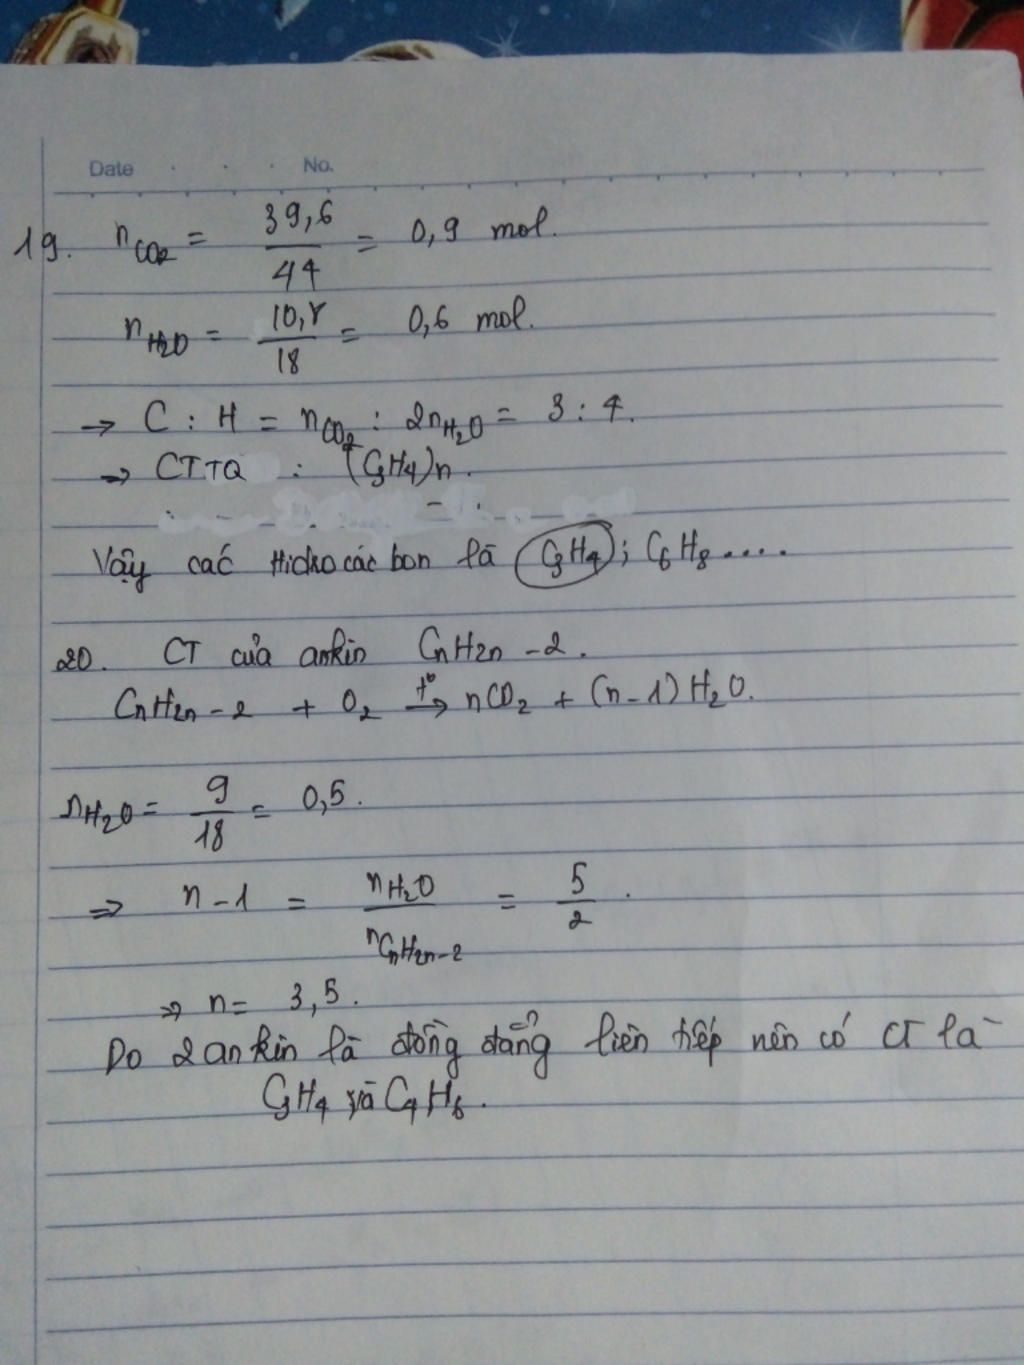 Date . . . No.
19. nCO2 = 39,6/44 = 0,9 mol.
nH2O = 10,8/18 = 0,6 mol.
→ C : H = nCO2 : 2nH2O = 3 : 4.
→ CTTQ : (C3H4)n.
Vậy các Hidro các bon là C3H4 ; C6H8 ....
20. CT của ankin CnH2n-2.
CnH2n-2 + O2 →(t°) nCO2 + (n-1)H2O.
nH2O = 9/18 = 0,5.
=> n-1 = nH2O/nCnH2n-2 = 5/2.
=> n = 3,5.
Do 2 ankin là đồng đẳng liên tiếp nên có CT là
C3H4 và C4H6.